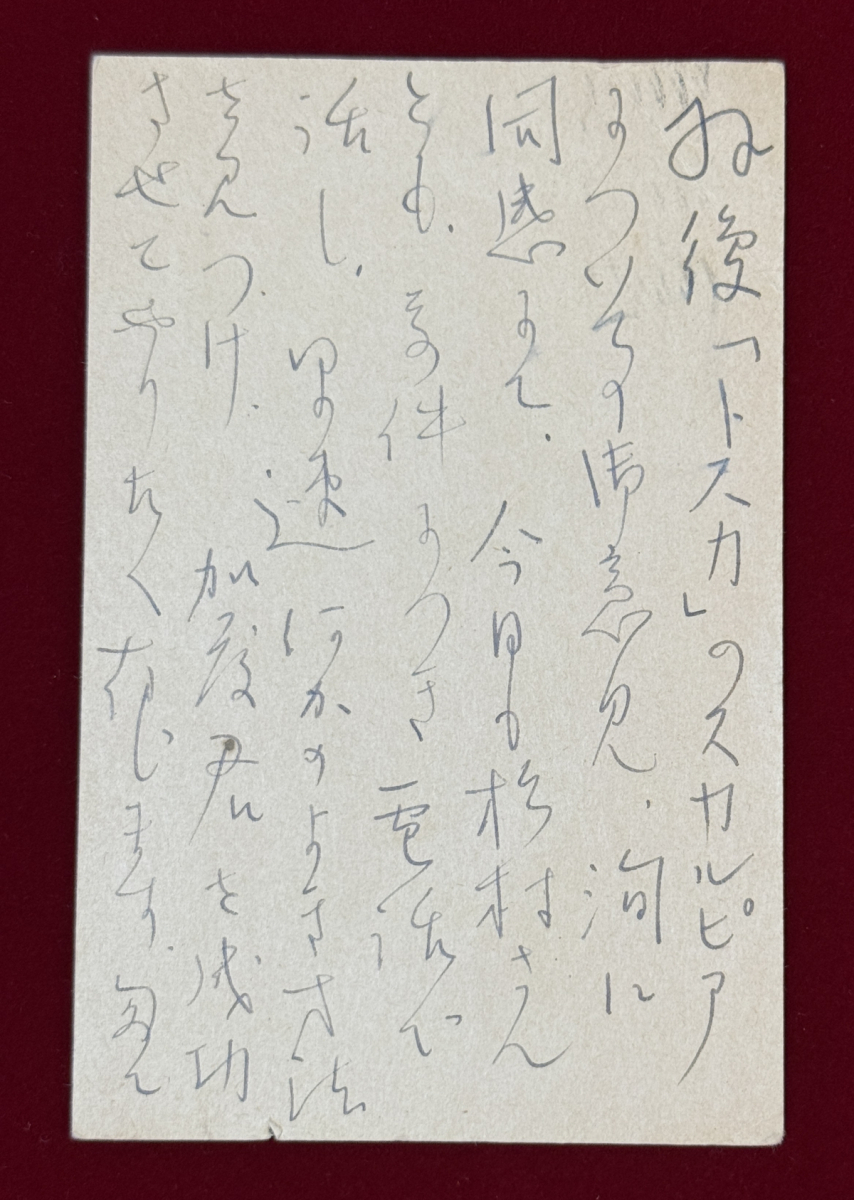 拝復「トスカ」のスカルピア
についての御意見、洵に
同感にて、今日も杉村さん
とも、件につき電話で
話し、早速何かのよき方法
を見つけ、君を成功
させてやりたく存じます、